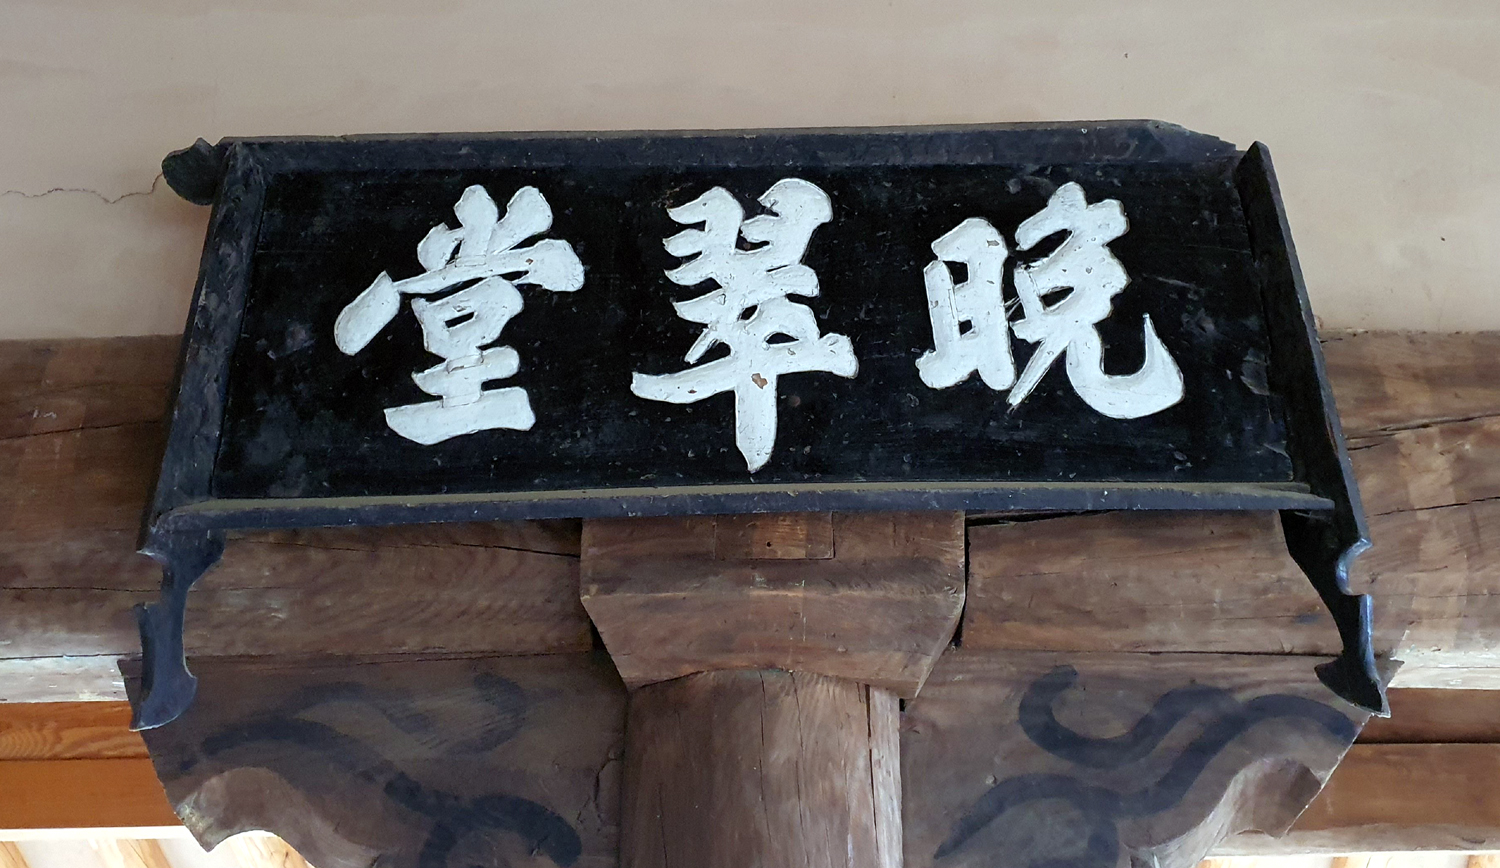 晩翠堂